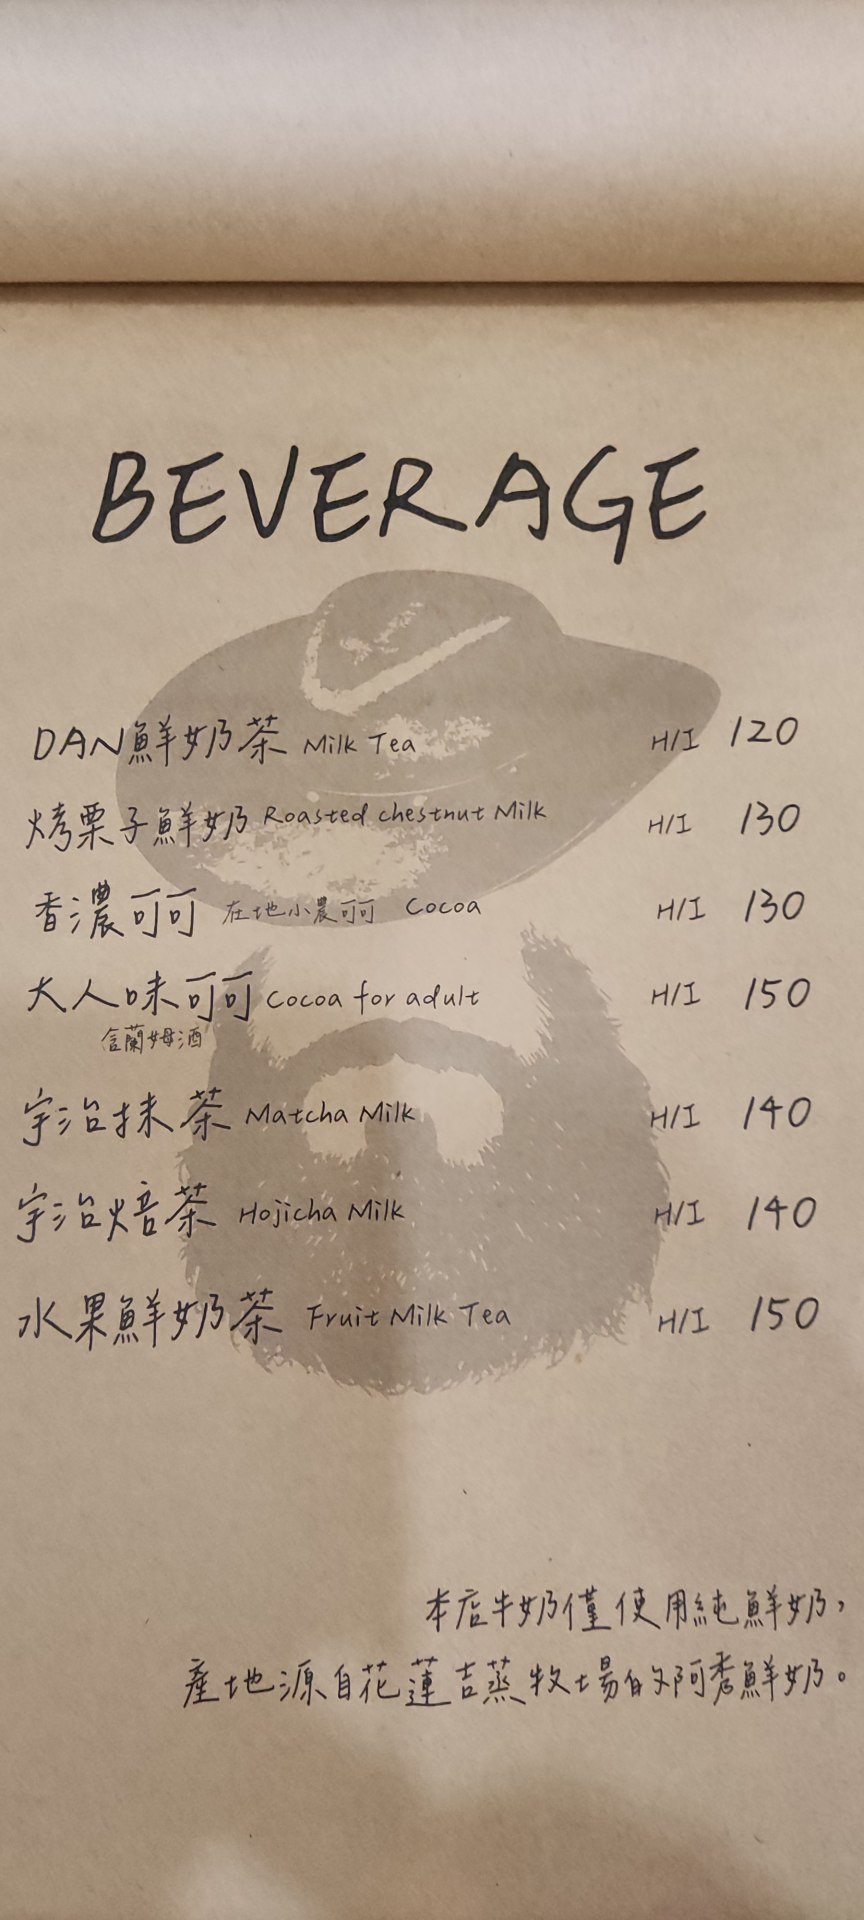 BEVERAGE
DAN鮮奶茶 Milk Tea H/I 120
烤栗子鮮奶 Roasted chestnut Milk H/I 130
香濃可可 在地小農可可 Cocoa H/I 130
大人味可可 Cocoa for adult H/I 150
含蘭姆酒
宇治抹茶 Matcha Milk H/I 140
宇治焙茶 Hojicha Milk H/I 140
水果鮮奶茶 Fruit Milk Tea H/I 150
本店牛奶僅使用純鮮奶，
產地源自花蓮吉蒸牧場的阿秀鮮奶。